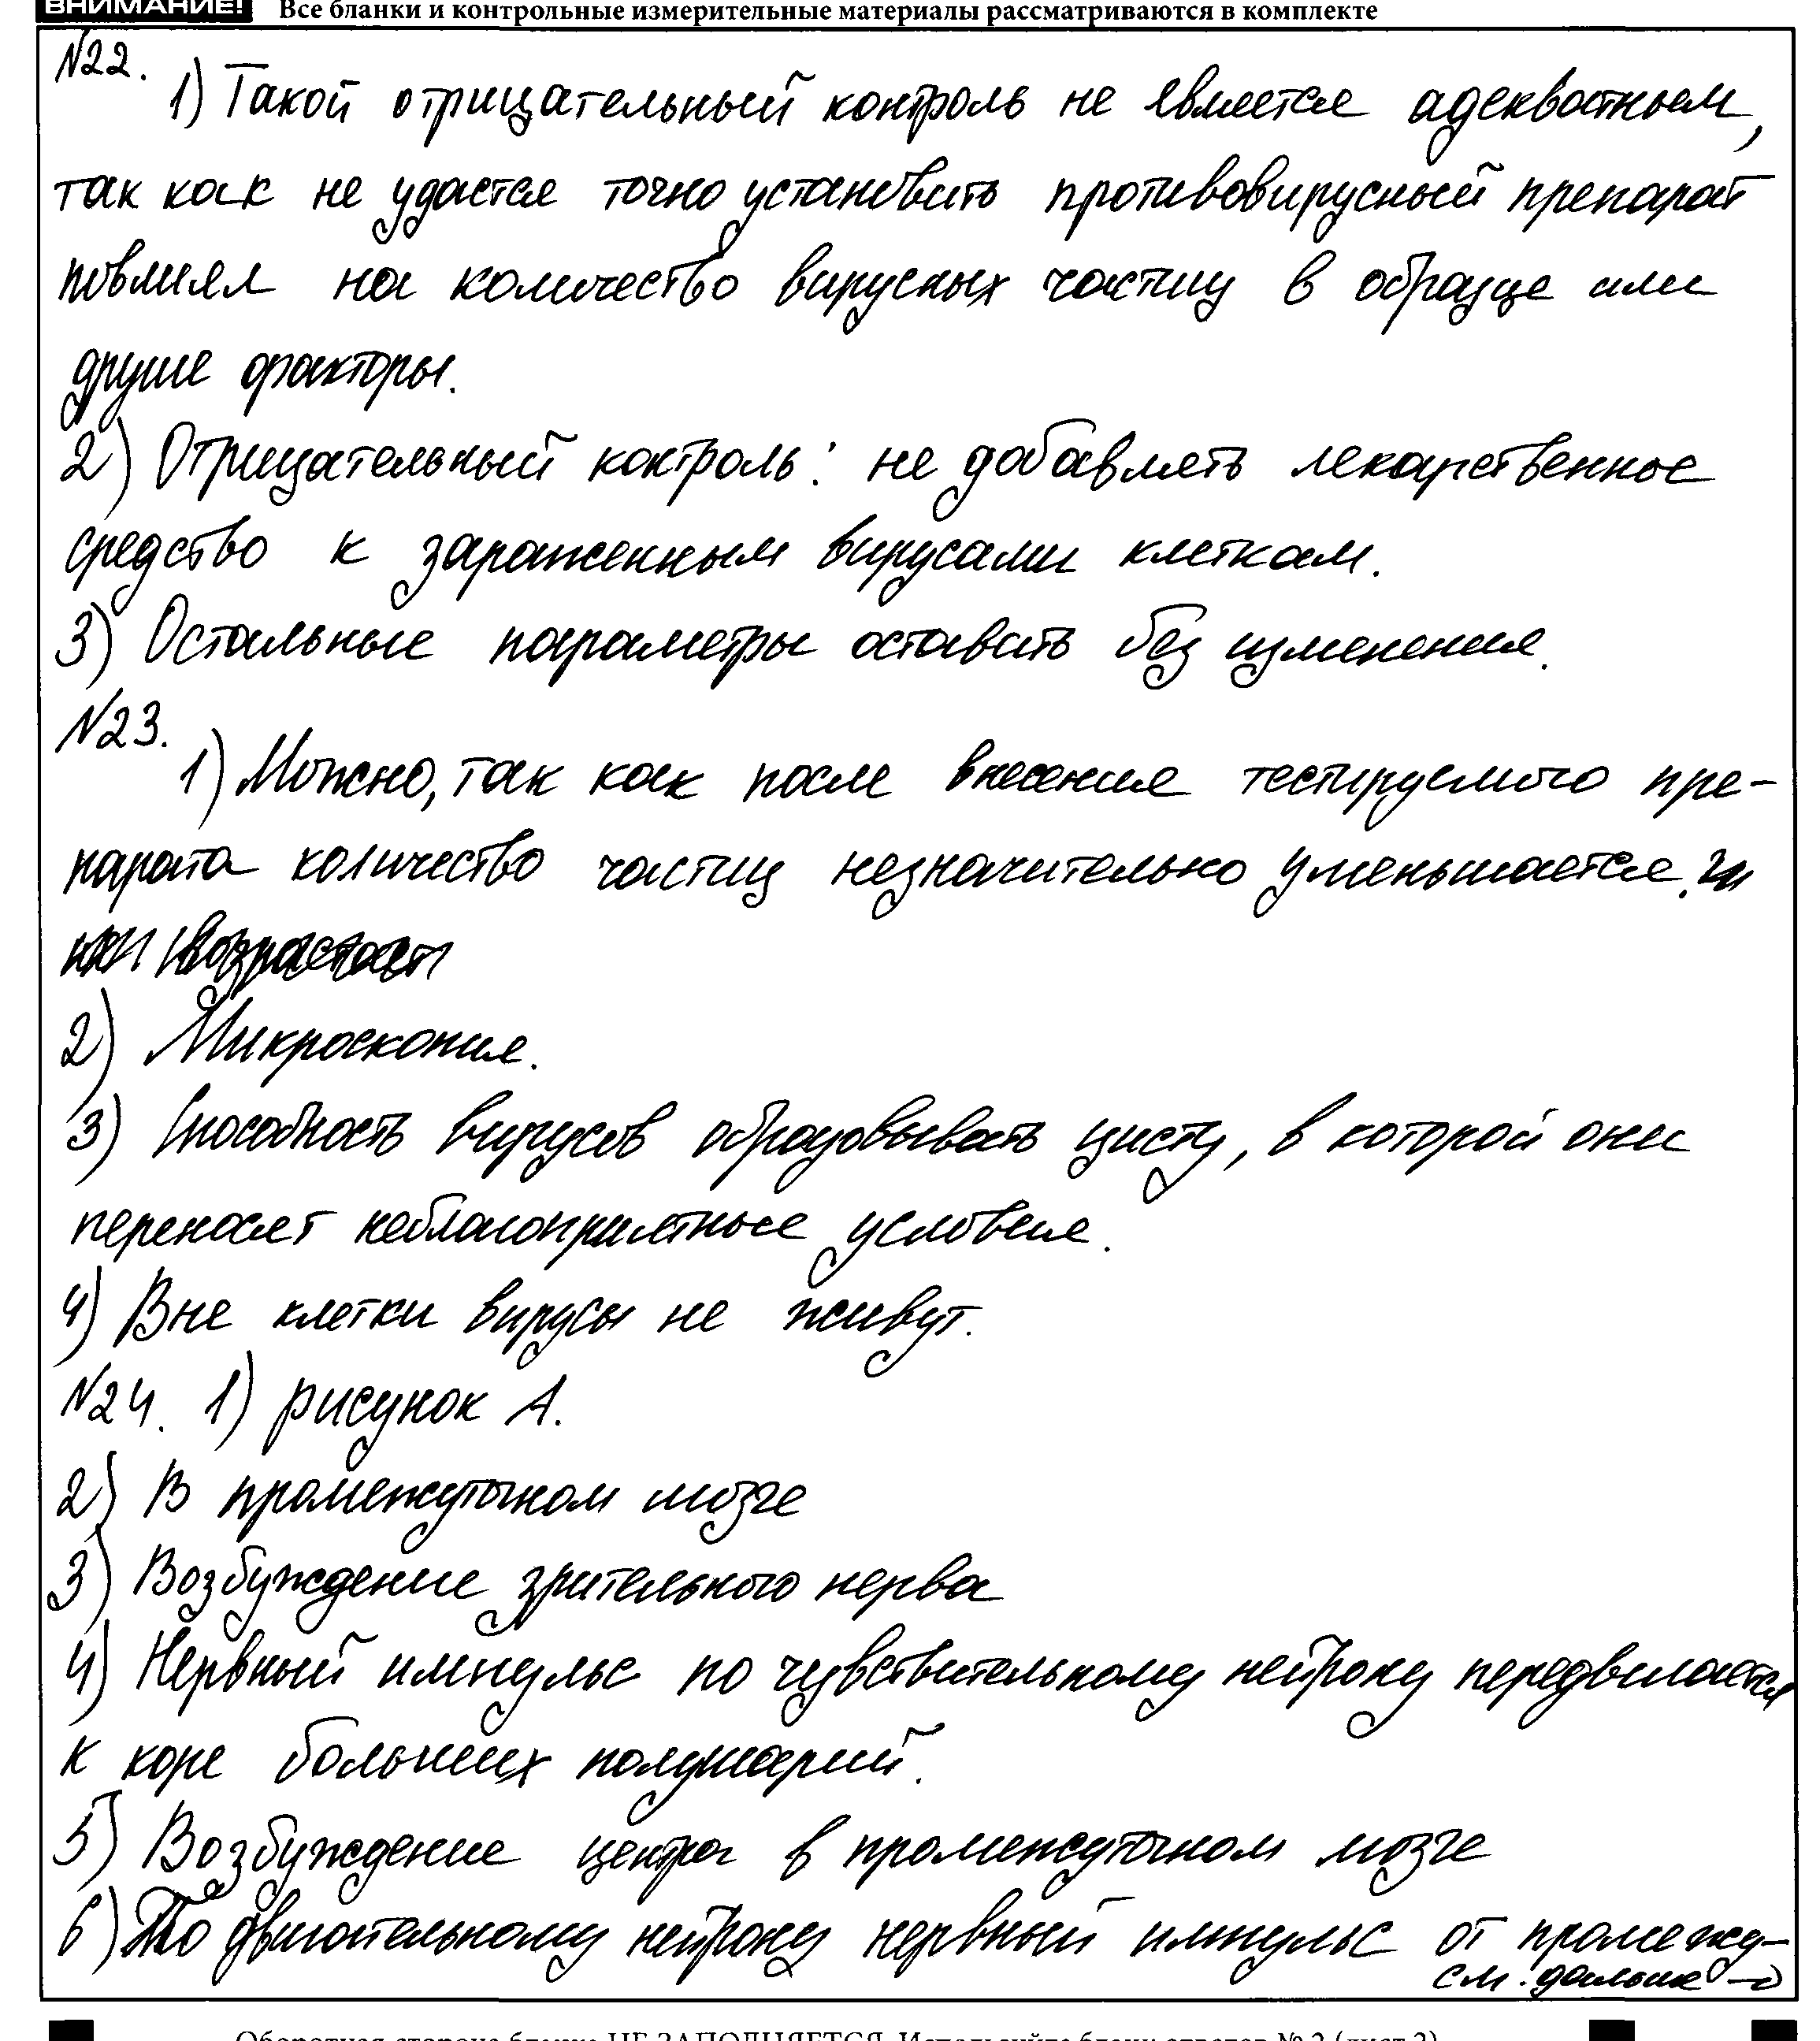 ВНИМАНИЕ! Все бланки и контрольные измерительные материалы рассматриваются в комплекте
№22.
1) Такой отрицательный контроль не является адекватным,
так как не удастся точно установить противовирусный препарат
повлиял на количество вирусных частиц в образце или
другие факторы.
2) Отрицательный контроль: не добавлять лекарственное
средство к зараженным вирусами клеткам.
3) Остальные параметры оставить без изменения.
№23.
1) Можно, так как после внесения тестируемого пре-
парата количество частиц незначительно уменьшается.
2) Микроскопия.
3) Способность вирусов образовывать цисту, в которой они
переносят неблагоприятные условия.
4) Вне клетки вирусы не живут.
№24. 1) рисунок А.
2) В промежуточном мозге
3) Возбуждение зрительного нерва
4) Нервный импульс по чувствительному нейрону передвигается
к коре больших полушарий.
5) Возбуждение центра в промежуточном мозге
6) По двигательному нейрону нервный импульс от промежу-
см. дальше →
Оборотная сторона бланка НЕ ЗАПОЛНЯЕТСЯ. Используйте бланк ответов № 2 (лист 2)